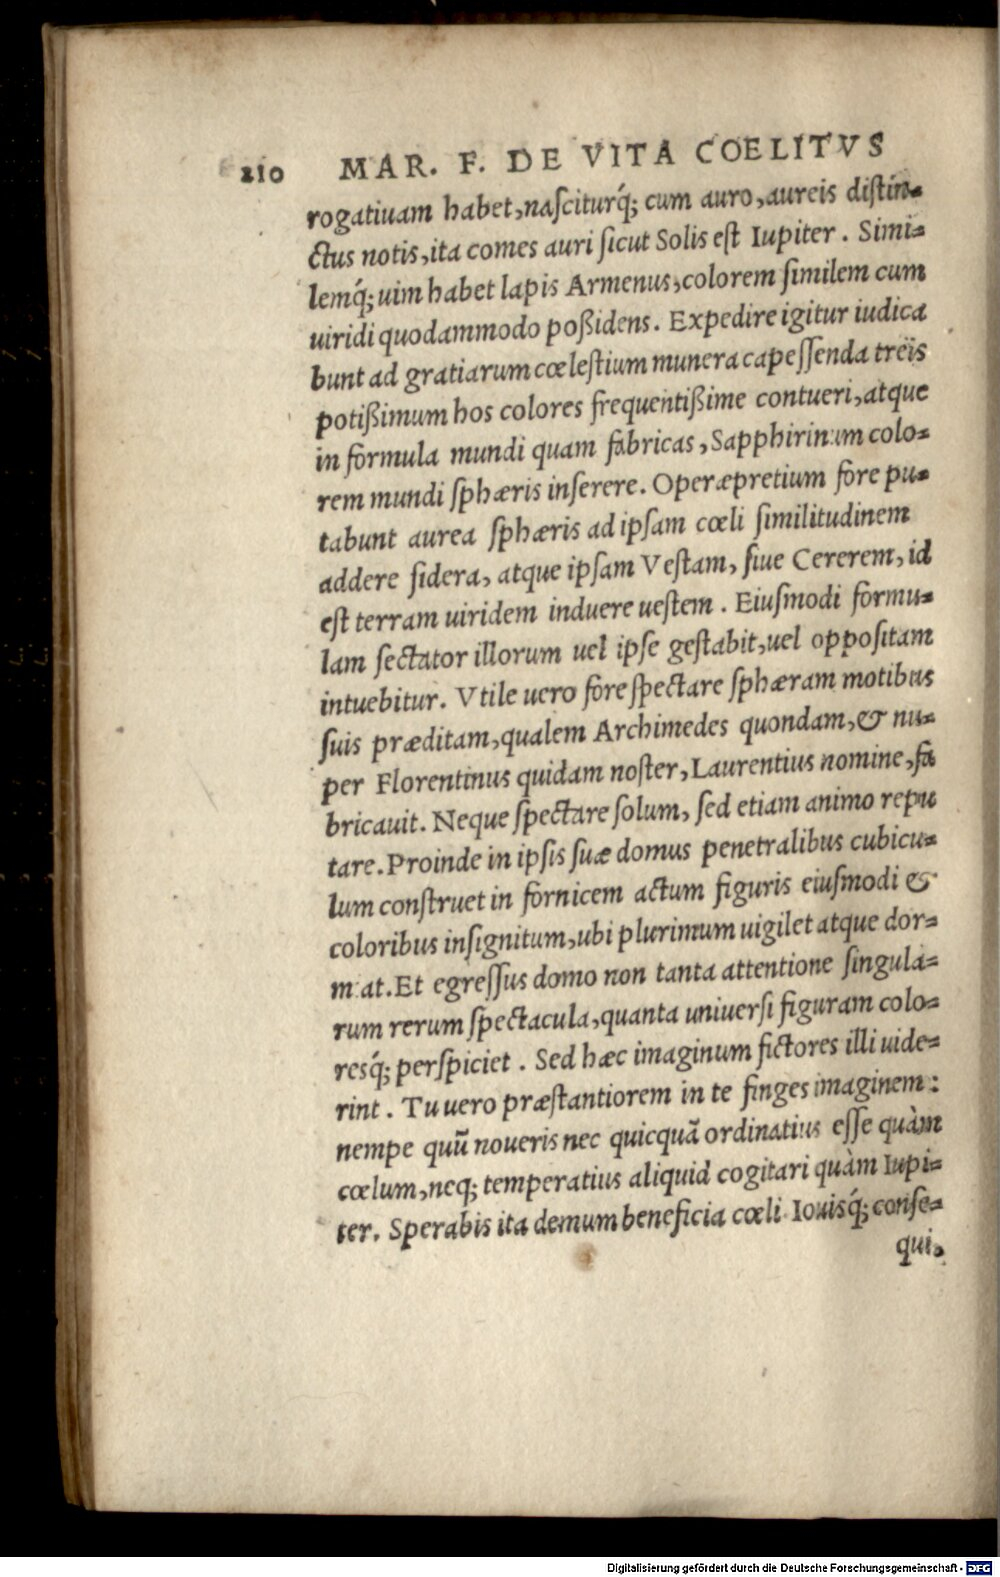 210 MAR. F. DE VITA COELITVS
rogatiuam habet,naſciturq́; cum auro,aureis diſtin-
ctus notis,ita comes auri ſicut Solis eſt Iupiter. Simi-
lemq́;uim habet lapis Armenus,colorem ſimilem cum
uiridi quodammodo poßidens. Expedire igitur iudica
bunt ad gratiarum cœleſtium munera capeſſenda treis
potißimum hos colores frequentißime contueri,atque
in formula mundi quam fabricas,Sapphirinum colo-
rem mundi ſphæris inſerere. Operæpretium fore pu-
tabunt aurea ſphæris ad ipſam cœli ſimilitudinem
addere ſidera, atque ipſam Veſtam, ſiue Cererem, id
eſt terram uiridem induere ueſtem. Eiuſmodi formu-
lam ſectator illorum uel ipſe geſtabit,uel oppoſitam
intuebitur. Vtile uero fore ſpectare ſphæram motibus
ſuis præditam,qualem Archimedes quondam,& nu-
per Florentinus quidam noſter,Laurentius nomine,fa
bricauit. Neque ſpectare ſolum, ſed etiam animo repu
tare.Proinde in ipſis ſuæ domus penetralibus cubicu-
lum conſtruet in fornicem actum figuris eiuſmodi &
coloribus inſignitum,ubi plurimum uigilet atque dor-
m at.Et egreſſus domo non tanta attentione ſingula-
rum rerum ſpectacula,quanta uniuerſi figuram colo-
resq́; perſpiciet. Sed hæc imaginum fictores illi uide-
rint. Tu uero præſtantiorem in te finges imaginem:
nempe quū noueris nec quicquā ordinatius eſſe quàm
cœlum,neq; temperatius aliquid cogitari quàm Iupi-
ter. Sperabis ita demum beneficia cœli Iouisq́; conſe-
qui.
Digitalisierung gefördert durch die Deutsche Forschungsgemeinschaft - DFG